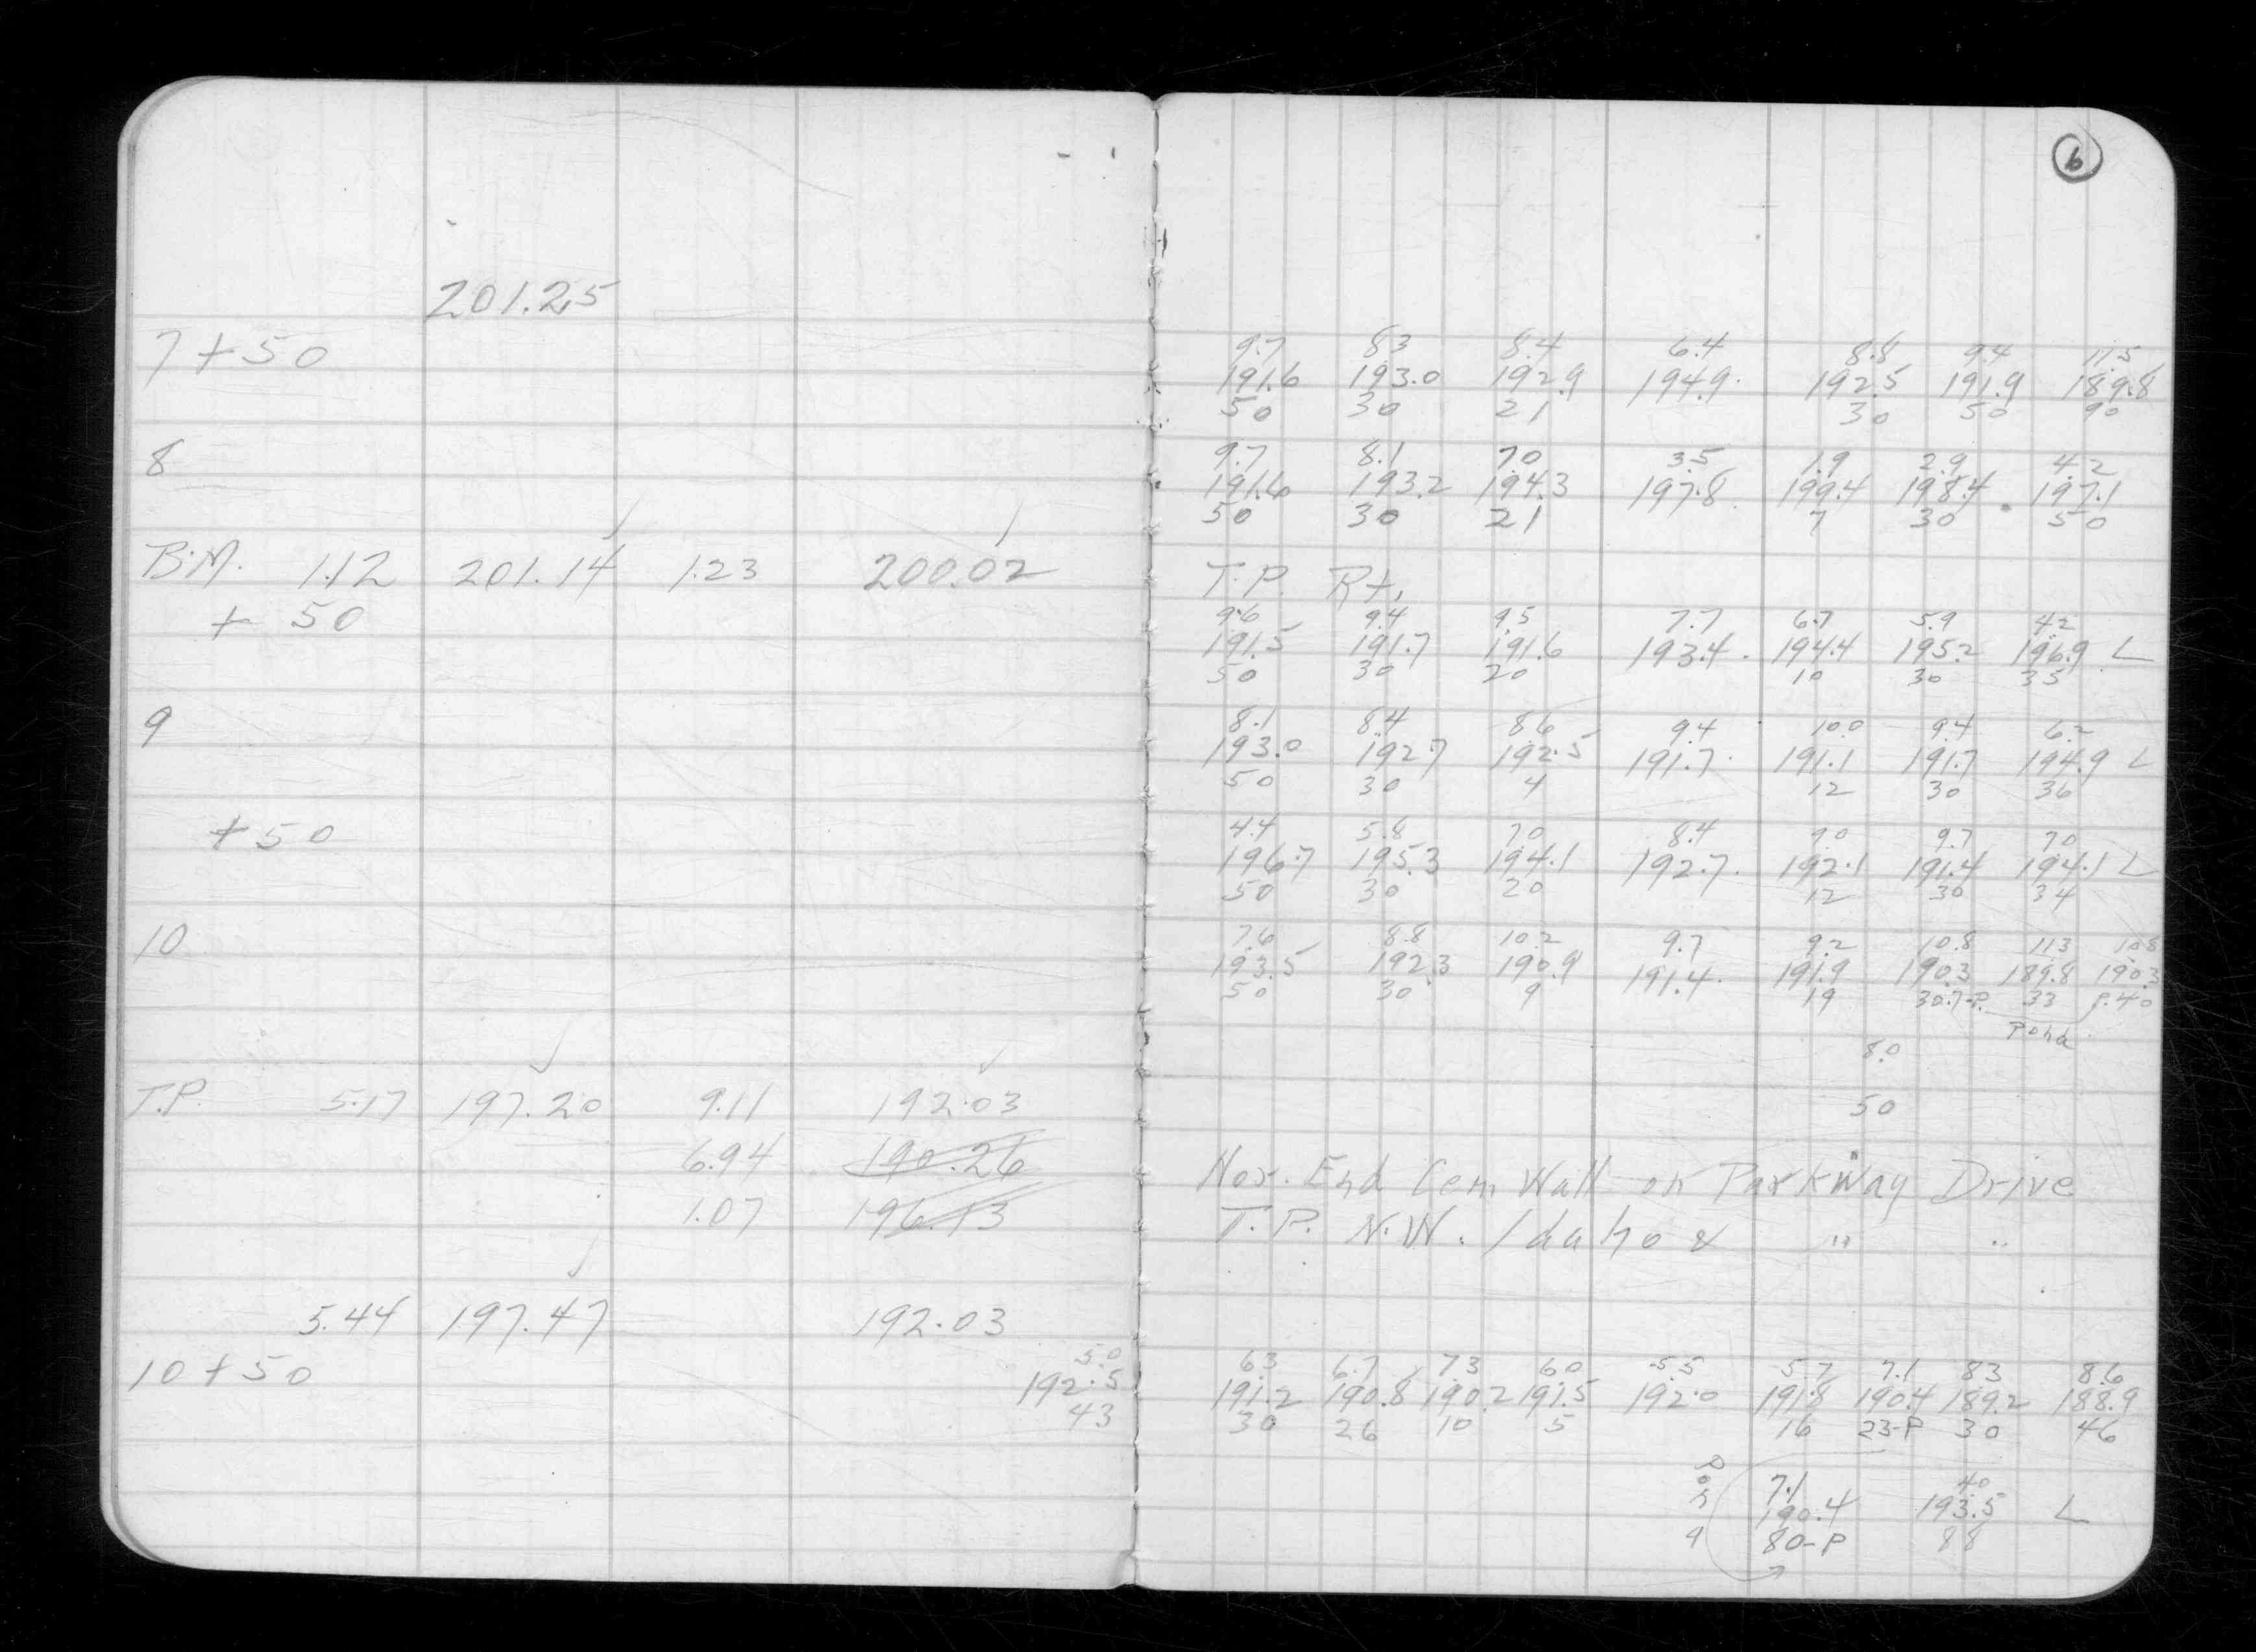 6
201.25
7+50
9.7 8.3 8.4 6.4 8.8 9.4 11.5
191.6 193.0 192.9 194.9 192.5 191.9 189.8
50 30 21 30 50 90
8
9.7 8.1 7.0 3.5 1.9 2.9 4.2
191.6 193.2 194.3 197.8 199.4 198.4 197.1
50 30 21 7 30 50
B.M. 1.12 201.14 1.23 200.02
T.P. Rt.
+ 50
9.6 9.4 9.5 7.7 6.7 5.9 4.2
191.5 191.7 191.6 193.4 194.4 195.2 196.9 L
50 30 20 10 30 35
9
8.1 8.4 8.6 9.4 10.0 9.4 6.2
193.0 192.7 192.5 191.7 191.1 191.7 194.9 L
50 30 4 12 30 36
+50
4.4 5.8 7.0 8.4 9.0 9.7 7.0
196.7 195.3 194.1 192.7 192.1 191.4 194.1 L
50 30 20 12 30 34
10
7.6 8.8 10.2 9.7 9.2 10.8 11.3 10.8
193.5 192.3 190.9 191.4 191.9 190.3 189.8 190.3
50 30 9 19 30.7-P. 33 P.40
Pond
8.0
50
T.P. 5.17 197.20 9.11 192.03
6.94 190.26
1.07 196.13
Nor. End Cem Wall on Parkway Drive
T.P. N.W. Idaho & " "
5.44 197.47 192.03
10+50
5.0
192.5
43
6.3 6.7 7.3 6.0 5.5 5.7 7.1 8.3 8.6
191.2 190.8 190.2 191.5 192.0 191.8 190.4 189.2 188.9
30 26 10 5 16 23-P 30 46
Pond
7.1 4.0
190.4 193.5 L
80-P 88